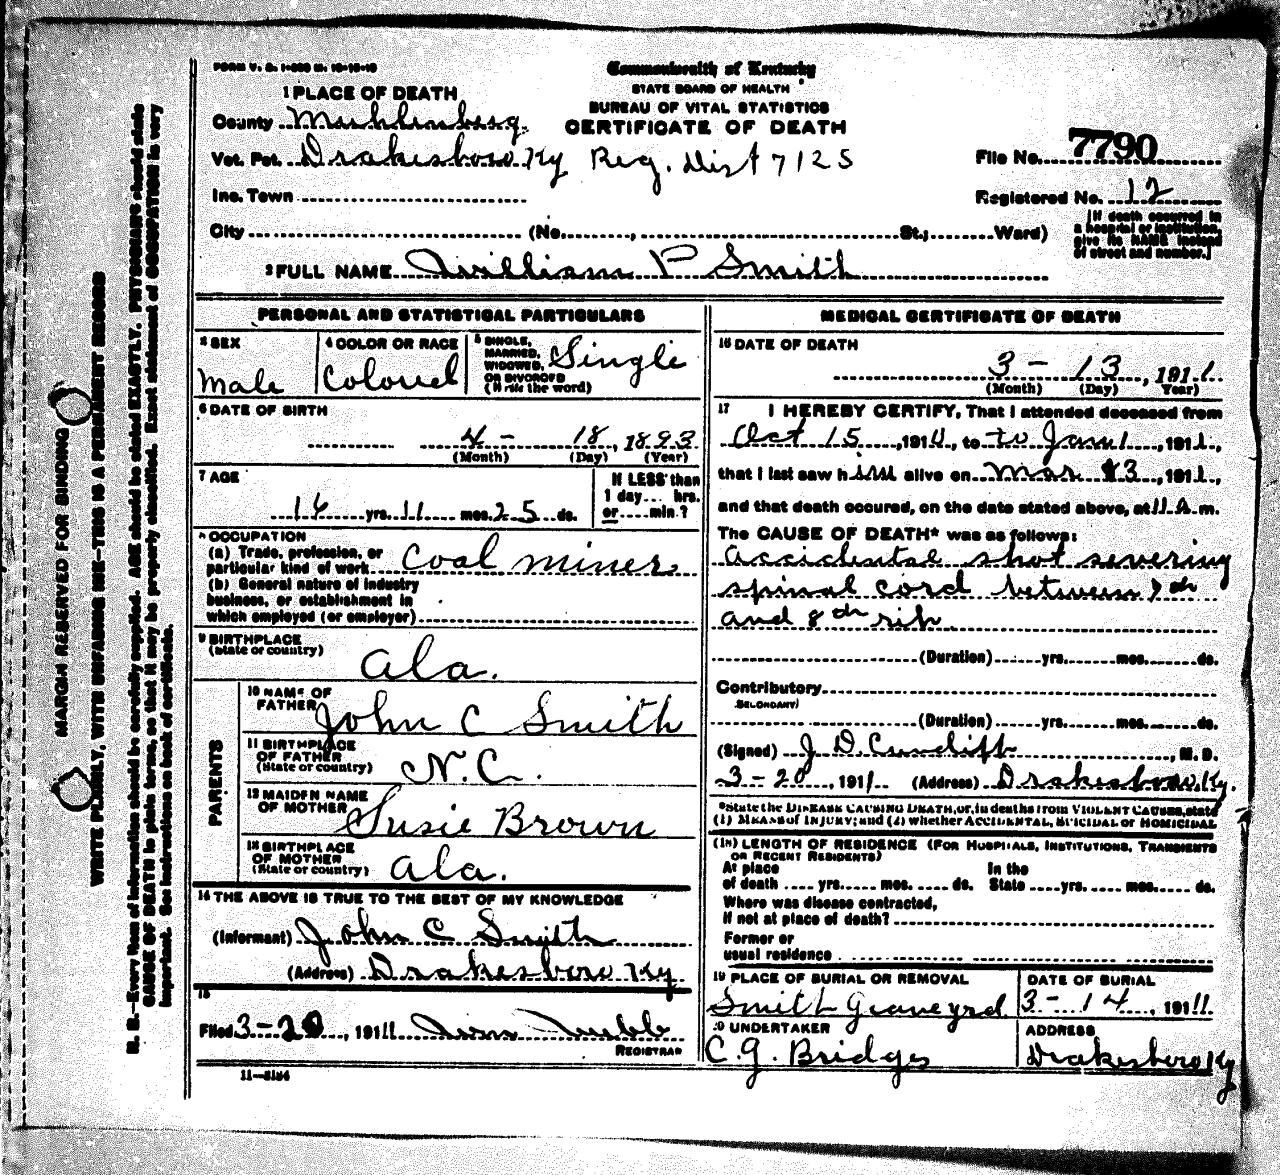 FORM V. S. 1-
Commonwealth of Kentucky
STATE BOARD OF HEALTH
BUREAU OF VITAL STATISTICS
CERTIFICATE OF DEATH
1 PLACE OF DEATH
County Muhlenberg
Vot. Pct. Drakesboro Ky Reg. Dist 7125
File No. 7790
Inc. Town
Registered No. 12
City (No. , St.; Ward)
[If death occurred in
a hospital or institution,
give its NAME instead
of street and number.]
2 FULL NAME William P Smith
PERSONAL AND STATISTICAL PARTICULARS
3 SEX
Male
4 COLOR OR RACE
Colored
5 SINGLE,
MARRIED,
WIDOWED,
OR DIVORCED
(Write the word)
Single
6 DATE OF BIRTH
4 - 18, 1893
(Month) (Day) (Year)
7 AGE
16 yrs. 11 mos. 25 ds.
If LESS than
1 day... hrs.
or....min.?
8 OCCUPATION
(a) Trade, profession, or
particular kind of work Coal miner
(b) General nature of industry
business, or establishment in
which employed (or employer)
9 BIRTHPLACE
(State or country)
Ala.
PARENTS
10 NAME OF
FATHER
John C Smith
11 BIRTHPLACE
OF FATHER
(State or country)
N.C.
12 MAIDEN NAME
OF MOTHER
Susie Brown
13 BIRTHPLACE
OF MOTHER
(State or country)
Ala.
14 THE ABOVE IS TRUE TO THE BEST OF MY KNOWLEDGE
(Informant) John C Smith
(Address) Drakesboro Ky
15
Filed 3-20, 1911
REGISTRAR
11-5184
MEDICAL CERTIFICATE OF DEATH
16 DATE OF DEATH
3 - 13, 1911
(Month) (Day) Year)
17 I HEREBY CERTIFY, That I attended deceased from
Oct 15, 191 , to to Jan 1, 1911,
that I last saw him alive on Mar 13, 1911,
and that death occured, on the date stated above, at 11 A.m.
The CAUSE OF DEATH* was as follows:
accidental shot severing
spinal cord between 7th
and 8th rib
(Duration) yrs. mos. ds.
Contributory
SECONDARY
(Duration) yrs. mos. ds.
(Signed) J. D. Cundiff, M. D.
3-20, 1911. (Address) Drakesboro, Ky.
*State the DISEASE CAUSING DEATH, or, in deaths from VIOLENT CAUSES, state
(1) MEANS of INJURY; and (2) whether ACCIDENTAL, SUICIDAL or HOMICIDAL
(18) LENGTH OF RESIDENCE (FOR HOSPITALS, INSTITUTIONS, TRANSIENTS
OR RECENT RESIDENTS)
At place In the
of death .... yrs. mos. ds. State yrs. mos. ds.
Where was disease contracted,
if not at place of death?
Former or
usual residence
19 PLACE OF BURIAL OR REMOVAL
Smith Graveyrd
DATE OF BURIAL
3 - 14, 1911
20 UNDERTAKER
C. G. Bridges
ADDRESS
Drakesboro Ky
MARGIN RESERVED FOR BINDING
WRITE PLAINLY, WITH UNFADING INK—THIS IS A PERMANENT RECORD
N. B.—Every item of information should be carefully supplied. AGE should be stated EXACTLY. PHYSICIANS should state
CAUSE OF DEATH in plain terms, so that it may be properly classified. Exact statement of OCCUPATION is very
important. See instructions on back of certificate.